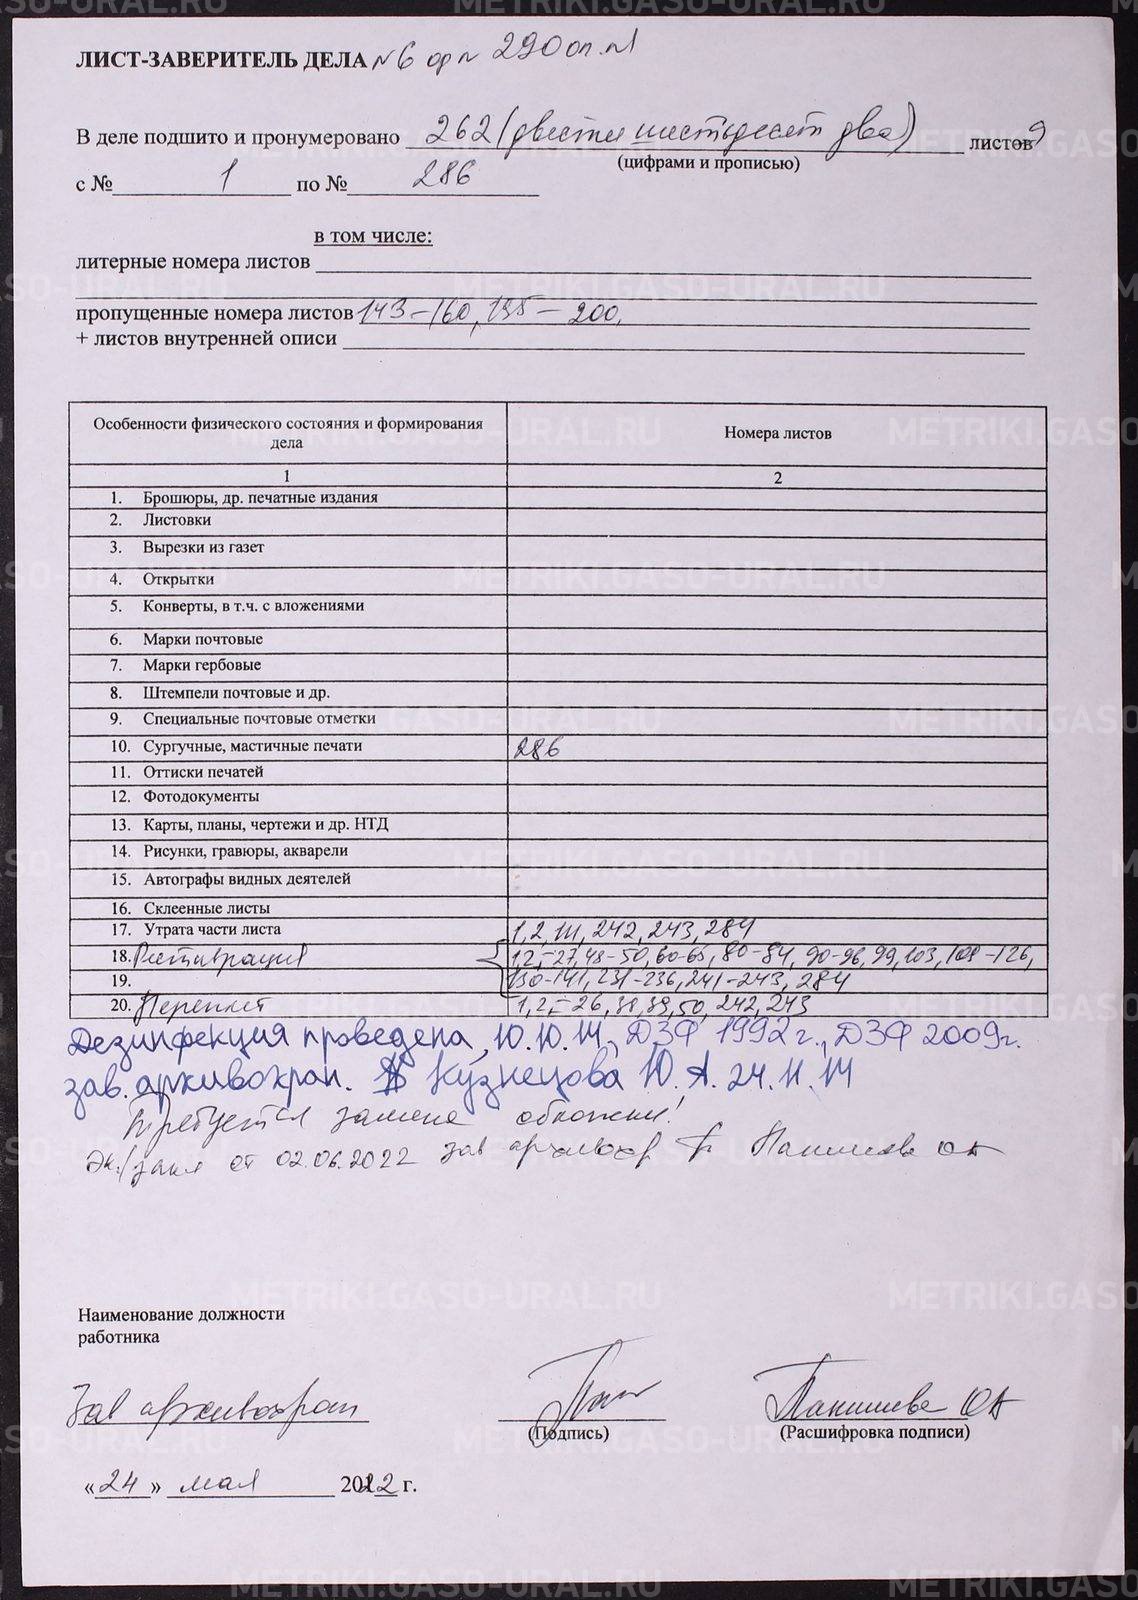 ЛИСТ-ЗАВЕРИТЕЛЬ ДЕЛА №6 ф № 290 оп. №1
В деле подшито и пронумеровано 262 (двести шестьдесят два) листов
(цифрами и прописью)
с № 1 по № 286
в том числе:
литерные номера листов
пропущенные номера листов 143-160, 195-200.
+ листов внутренней описи
Особенности физического состояния и формирования дела
Номера листов
1
2
1. Брошюры, др. печатные издания
2. Листовки
3. Вырезки из газет
4. Открытки
5. Конверты, в т.ч. с вложениями
6. Марки почтовые
7. Марки гербовые
8. Штемпели почтовые и др.
9. Специальные почтовые отметки
10. Сургучные, мастичные печати 286
11. Оттиски печатей
12. Фотодокументы
13. Карты, планы, чертежи и др. НТД
14. Рисунки, гравюры, акварели
15. Автографы видных деятелей
16. Склеенные листы
17. Утрата части листа 1, 2, 111, 242, 243, 284
18. Реставрация 1,2,-27, 48-50, 60-65, 80-84, 90-96, 99, 103, 108-126,
19. 130-141, 231-236, 241-243, 284
20. Переплет 1, 2,-26, 38, 39, 50, 242, 243
Дезинфекция проведена 10.10.14, ДЗФ 1992 г., ДЗФ 2009г.
зав. архивохран. Кузнецова Ю.А. 24.11.14
Требуется замена обложки!
от 02.06.2022 зав архивохр Паншиева ОА
Наименование должности
работника
Зав архивохран
(Подпись)
Паншиева ОА
(Расшифровка подписи)
«24» мая 2022 г.
METRIKI.GASO-URAL.RU